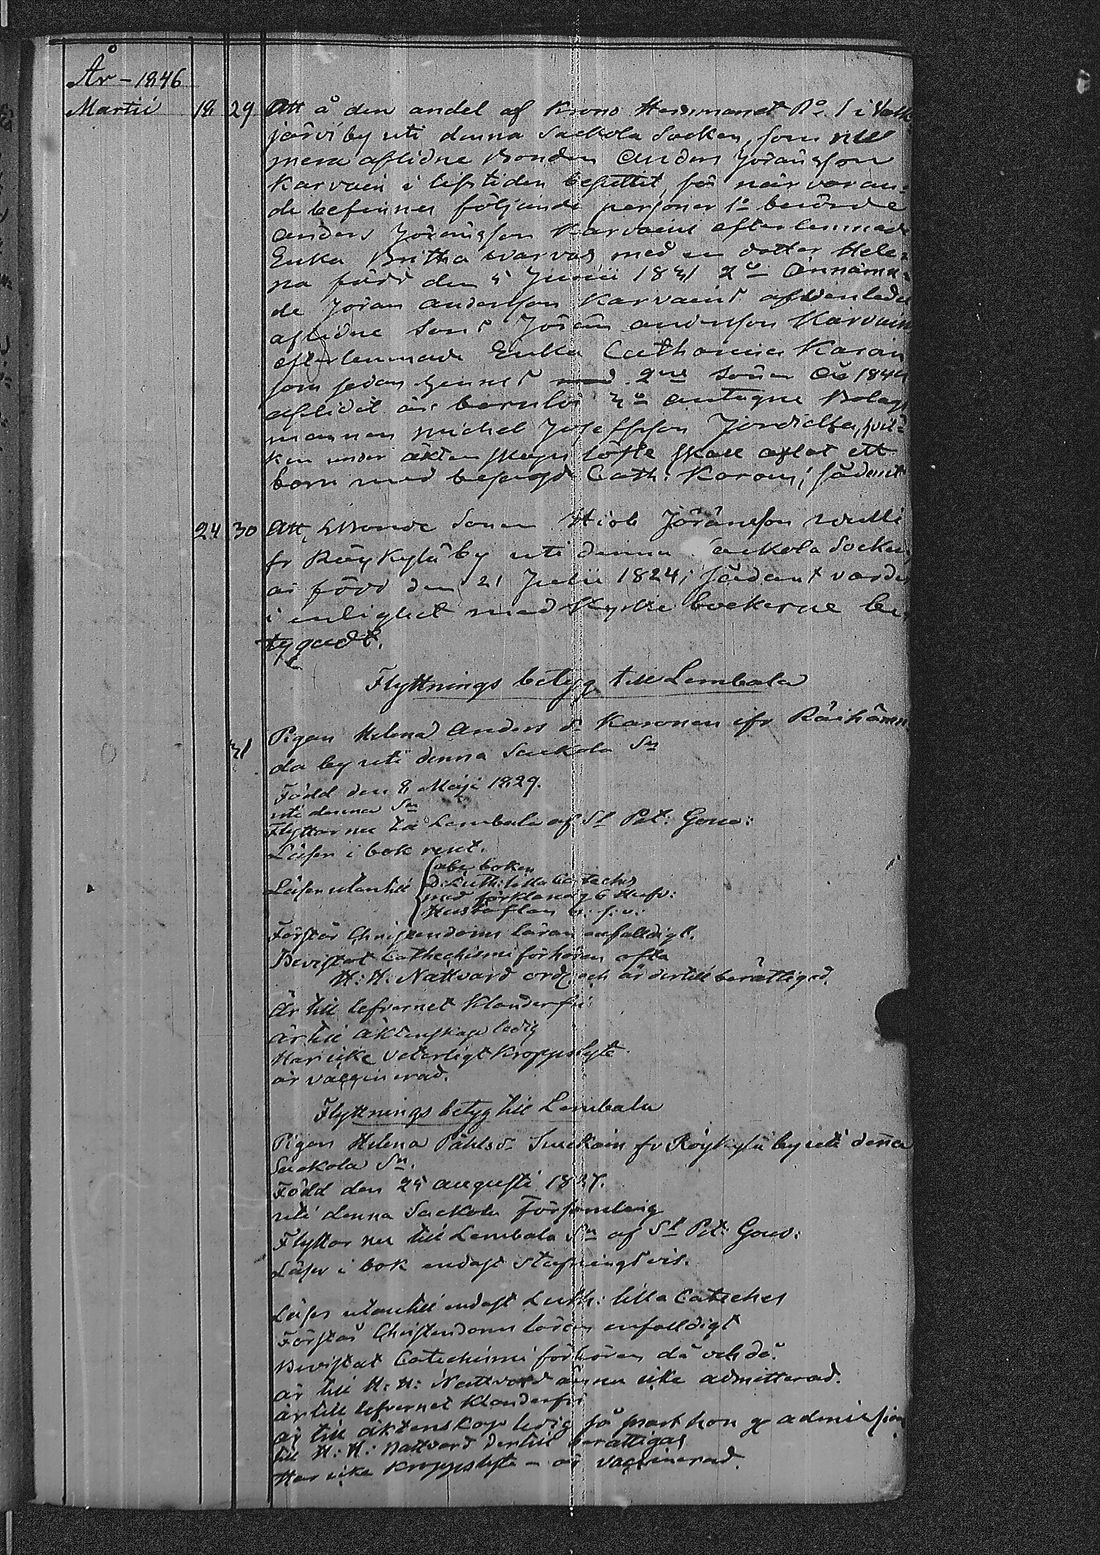 År - 1846
Martii 18 29 Att å den andel af Krono Hemmanet No 1 i
järvi by uti denna Sackola Socken, som
mera aflidne Bonden Anders Jöransson
Karvain i lifstiden besuttit, för närvaran-
de befinnes följande personer 1o berörde
Anders Jöransson Karvains efterlemnade
Enka Britha med en dotter Hele-
na född den 5 Junii 1831 2o
de Jöran Andersson Karvains
aflidne Sons Jöran Andersson Karvain
efterlemnade Enka Catharina Karoin
som sedan hennes 2ne Söner 1844
aflidit är barnlös 3o antagne Bolags
mannen Michel Josefsson
ken under äktenskaps löfte skall aflat ett
barn med besagde Cath: Karoin; sådant
24 30 Att Bonde Sonen Hiob Jöransson
fr Röykylä by uti denna Sackola Socken
är född den 21 Julii 1824; sådant varder
i enlighet med Kyrko böckerne be-
tygadt.
Flyttnings betyg till Lembala
31 Pigan Helena Anders dr Karonen ifr Räihäran
da by uti denna Sackola Sn
Född den 8 Maji 1829.
uti denna Sn
Flyttar nu till Lembala af St Pet: Gouv:
Läser i bok rent.
Läser utantill abc boken
D: Luth: lilla Cateches
med förklaring 6 Hufv:
Hustaflan o. s. v.
Förstår Christendoms läran enfaldigt.
Bevistat Cathechismi förhören ofta
H: H: Nattvard ord: och är dertill berättigad.
Är till lefvernet Klanderfri
är till äktenskap ledig
Har icke veterligt Kroppslyte
är vaccinerad.
Flyttnings betyg till Lembala
Pigan Helena Påhls dr Suikain fr Röykylä by uti denna
Sackola Sn.
Född den 25 Augusti 1827.
uti denna Sackola Församling
Flyttar nu till Lembala Sn af St Pet: Gouv:
Läser i bok endast stafningsvis.
Läser utantill endast Luth: lilla Cateches
Förstår Christendoms läran enfaldigt
Bevistat Catechismi förhören då och då.
är till H: H: Nattvard ännu icke admitterad.
är till lefvernet Klanderfri
är till äktenskap ledig så snart hon gr admission
till H: H: Nattvard dertill berättigas
Har icke Kroppslyte - är vaccinerad.